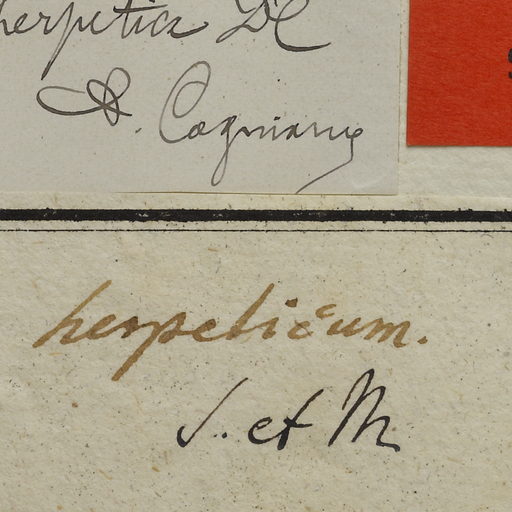 herpetica DC
A. Cogniaux
herpeticum.
S. et M